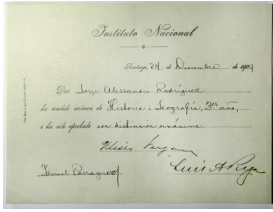 Instituto Nacional
Santiago, 24 de Diciembre de 19
Don Jorge Alessandri Rodríguez
ha rendido exámen de Historia i Jeografía, 3er año,
i ha sido aprobado con distincion unánime.
Ulises Vergara
Ismael Parraguez
Luis A.